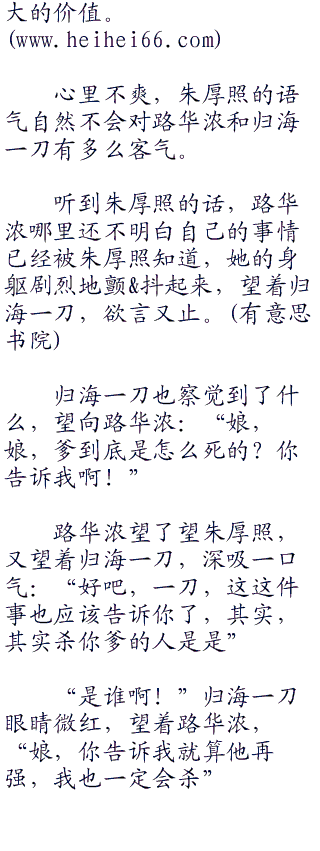 大的价值。
(www.heihei66.com)
心里不爽，朱厚照的语
气自然不会对路华浓和归海
一刀有多么客气。
听到朱厚照的话，路华
浓哪里还不明白自己的事情
已经被朱厚照知道，她的身
躯剧烈地颤&抖起来，望着归
海一刀，欲言又止。(有意思
书院)
归海一刀也察觉到了什
么，望向路华浓：“娘，
娘，爹到底是怎么死的？你
告诉我啊！”
路华浓望了望朱厚照，
又望着归海一刀，深吸一口
气：“好吧，一刀，这这件
事也应该告诉你了，其实，
其实杀你爹的人是是”
“是谁啊！”归海一刀
眼睛微红，望着路华浓，
“娘，你告诉我就算他再
强，我也一定会杀”